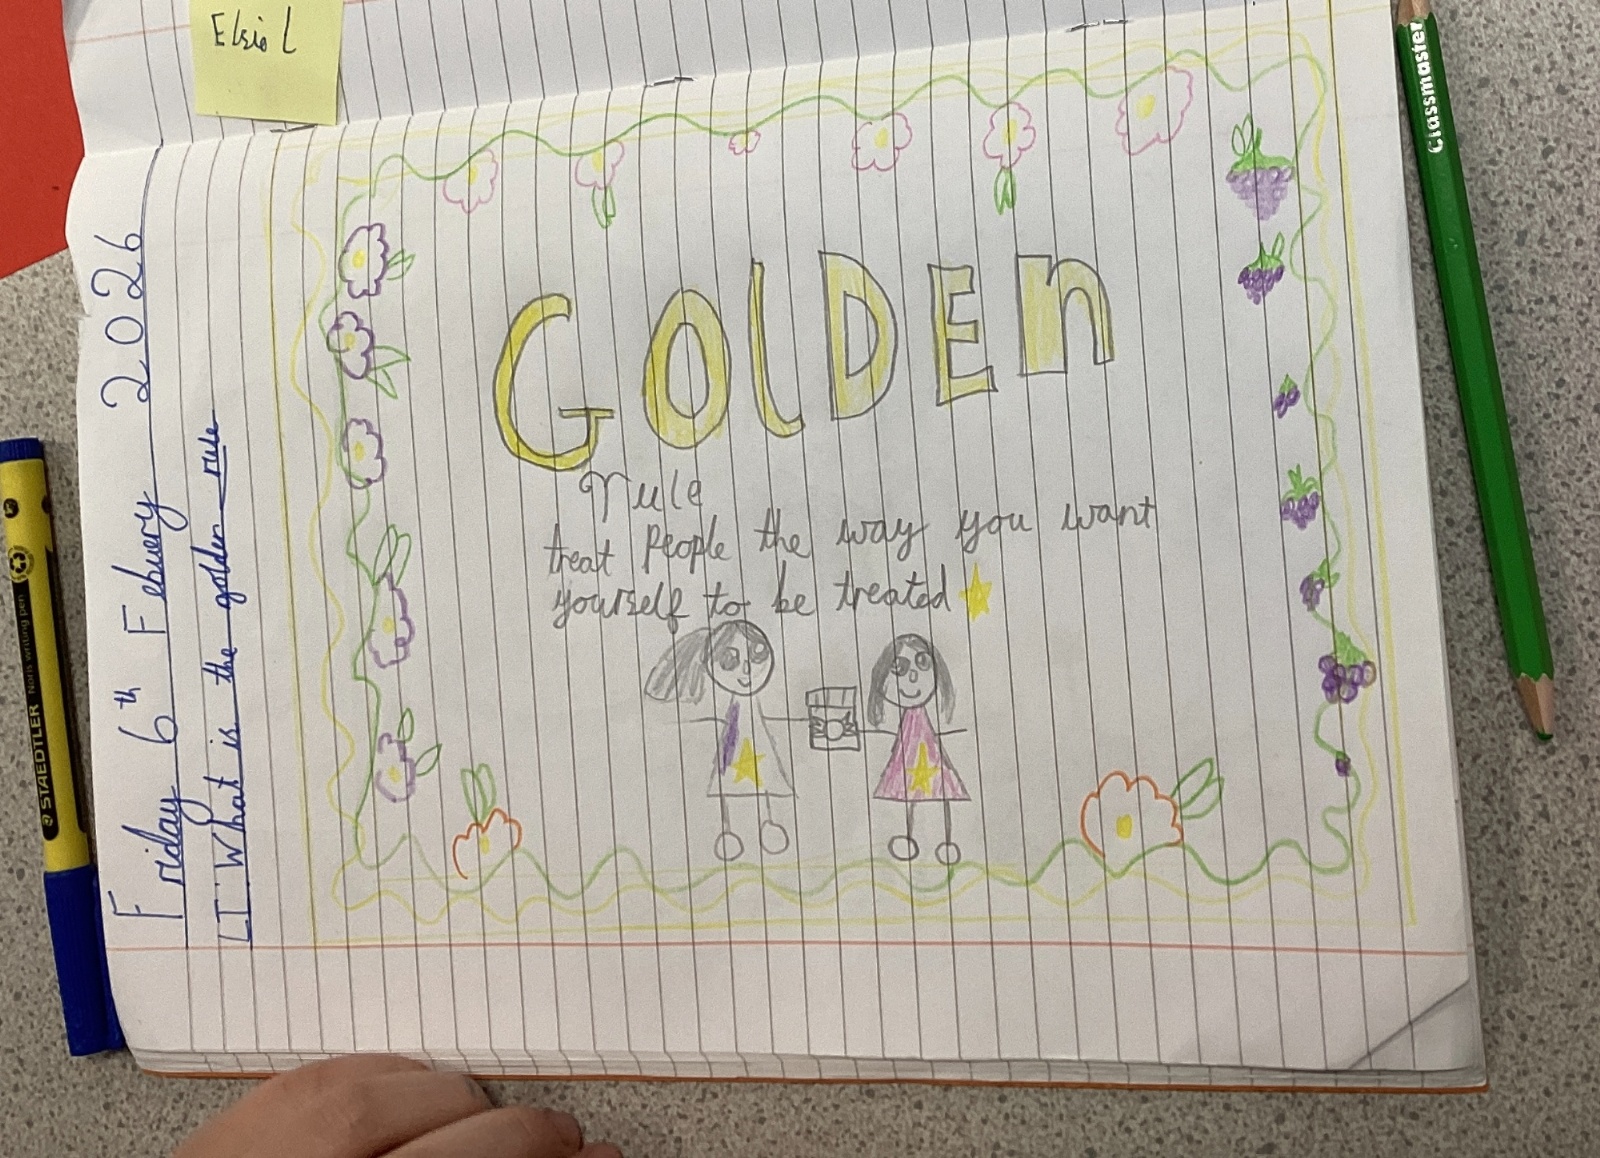 Elsie L
Friday 6th Febuery 2026
LI: What is the golden rule
GOlDEn
rule
treat People the way you want
yourself to be treated
Classmaster
STAEDTLER Noris writing pen